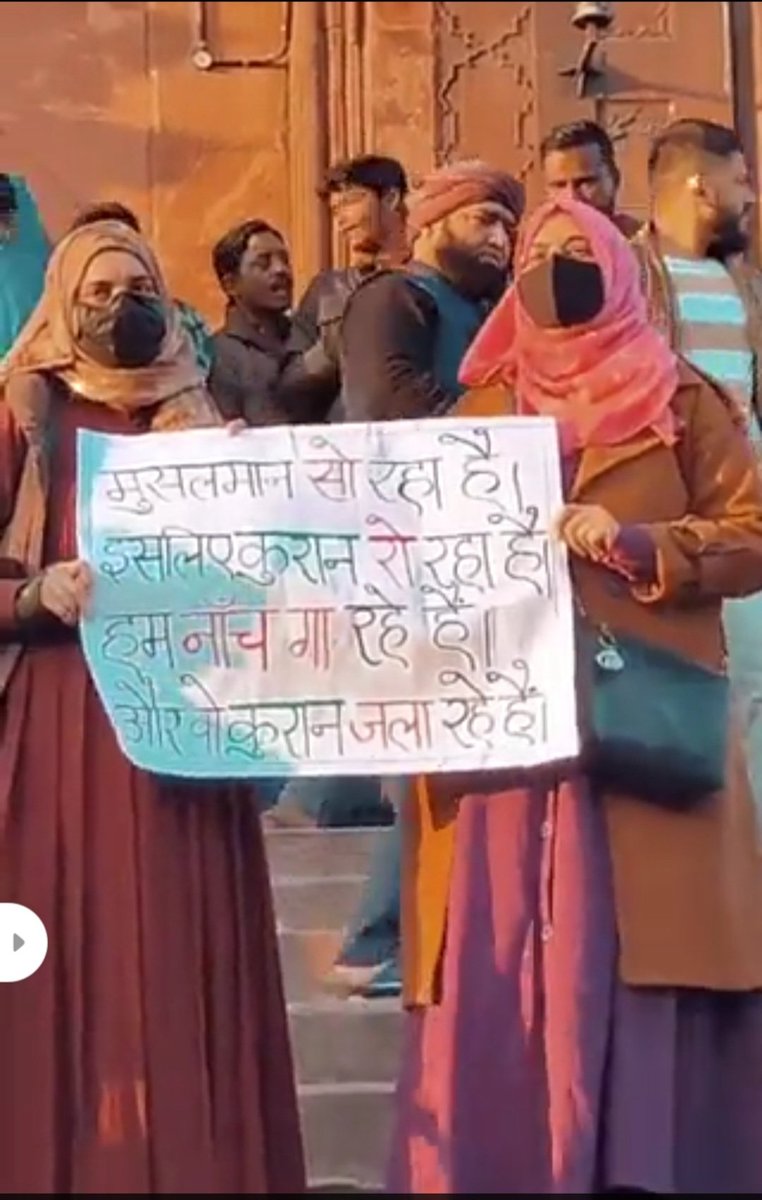 मुसलमान सो रहा है।
इसलिए कुरान रो रहा है।
हम नाँच गा रहे हैं॥
और वो कुरान जला रहे हैं।